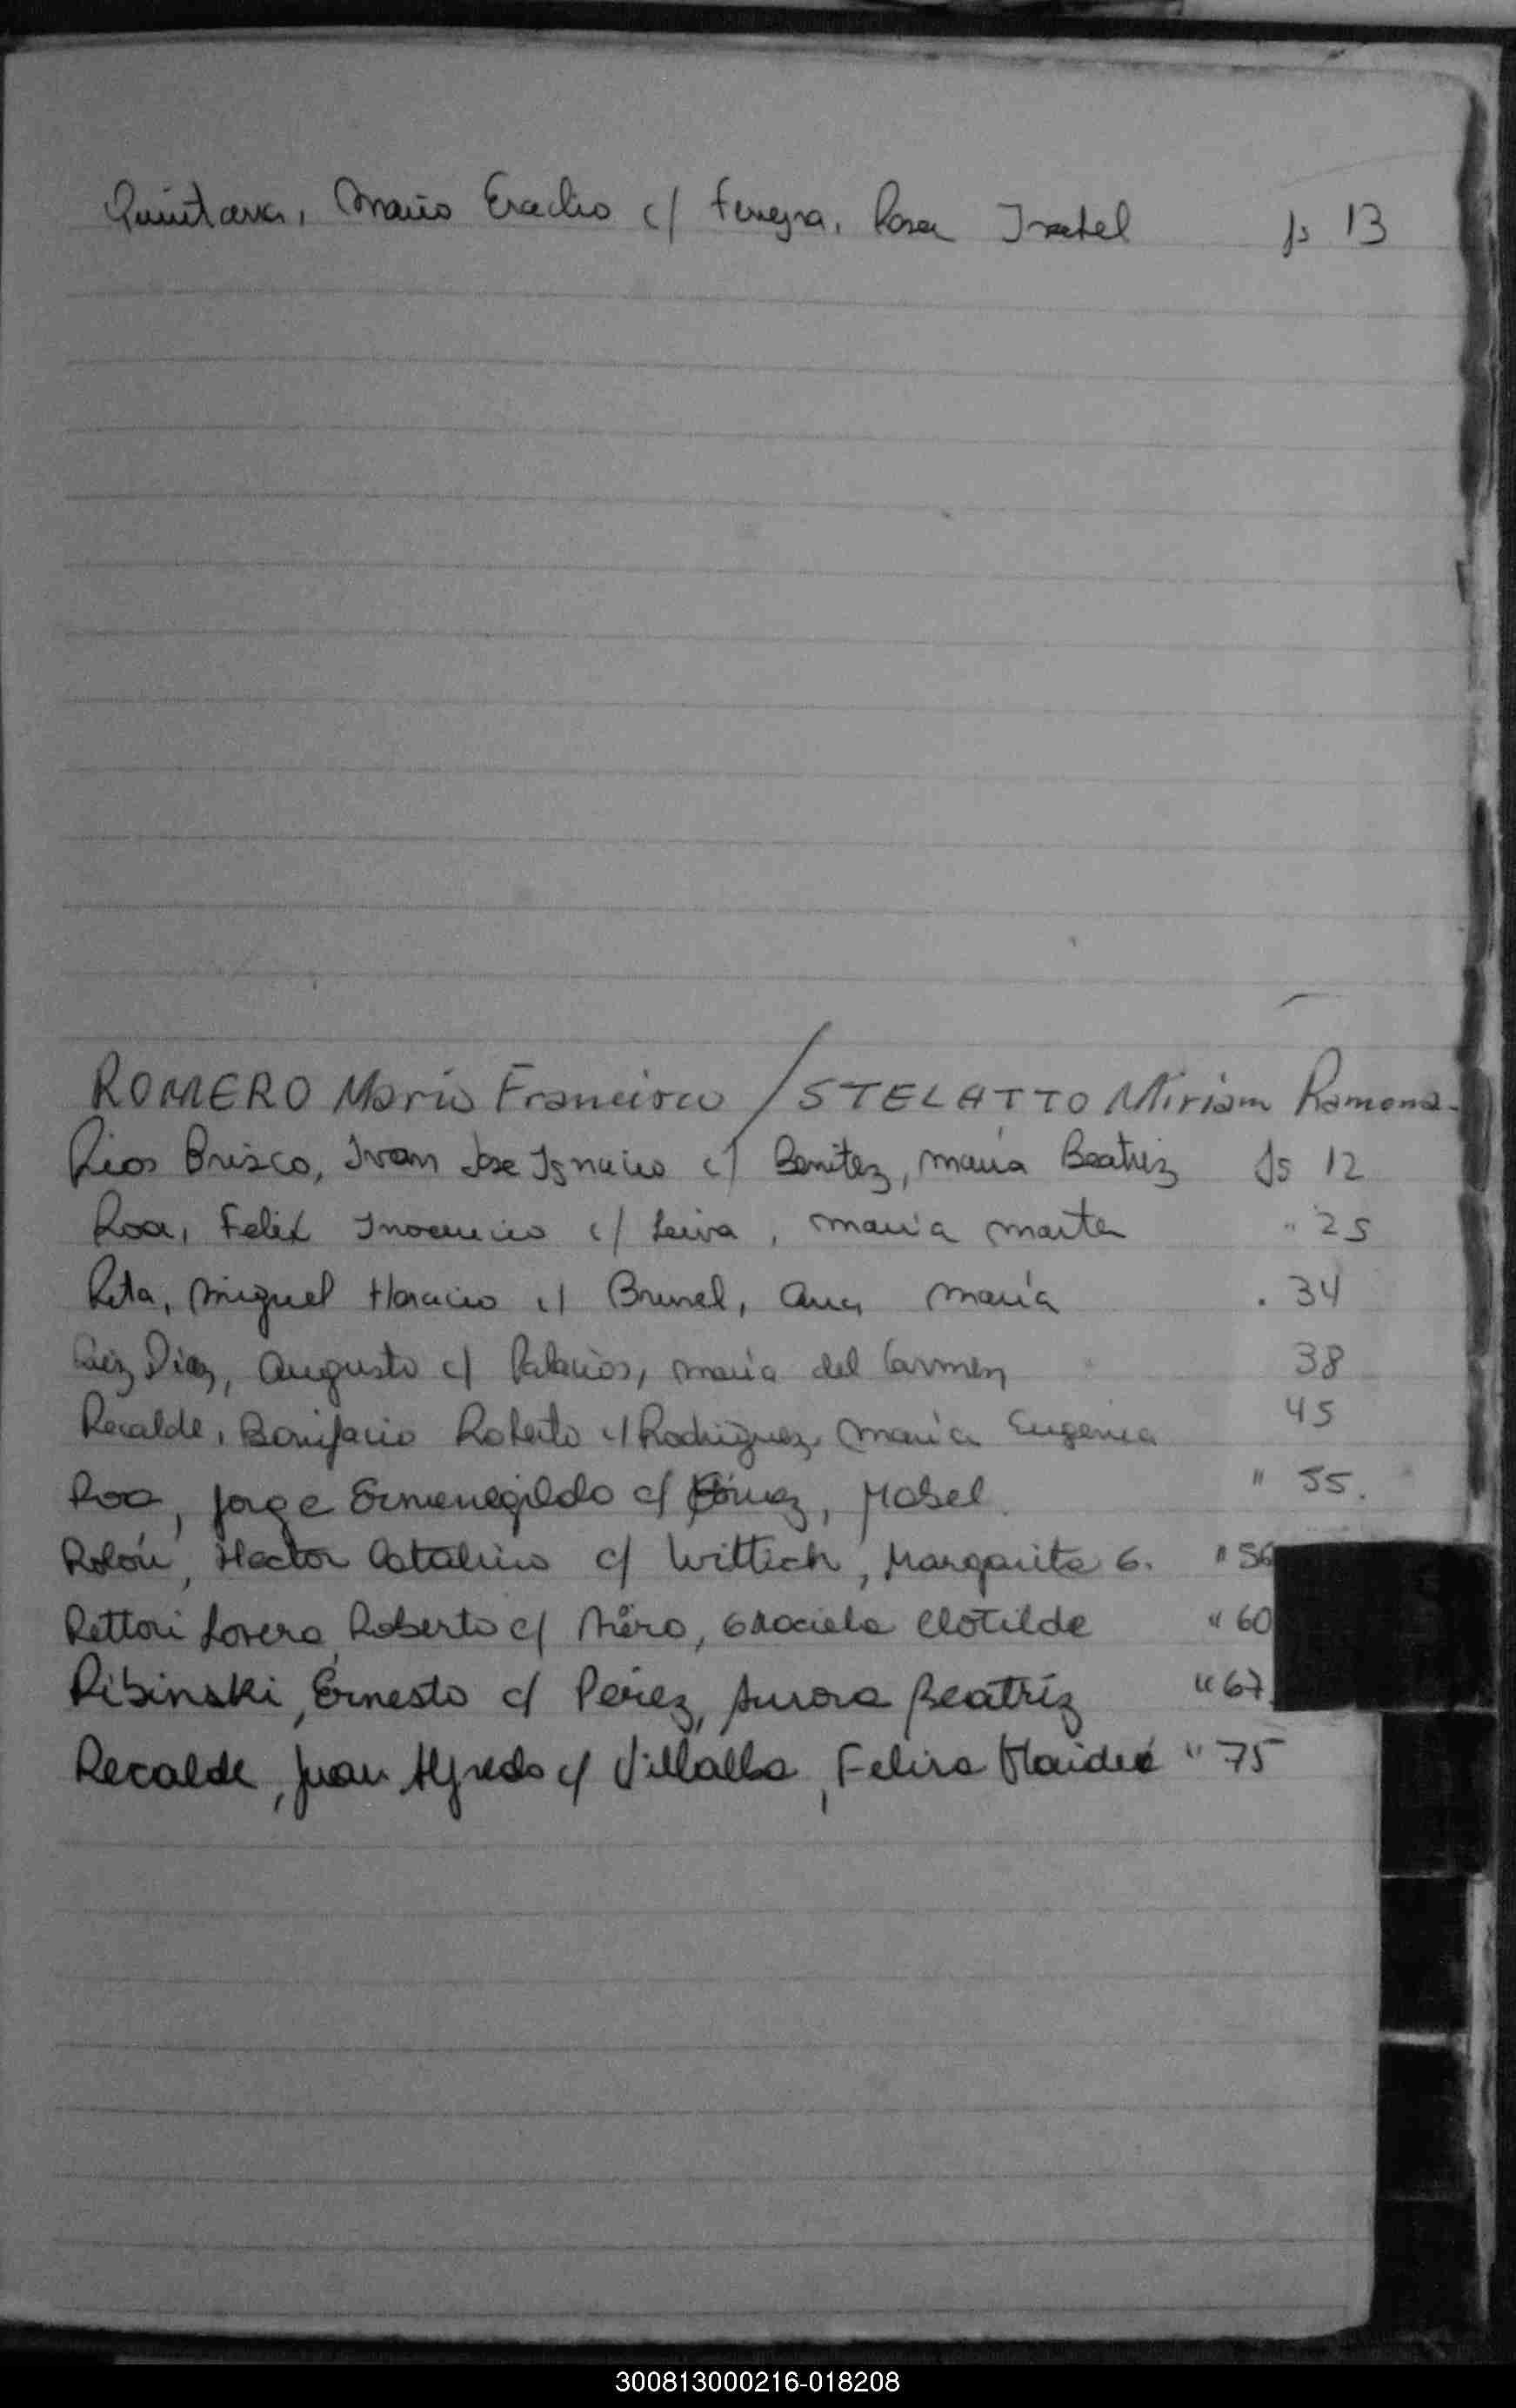 Quintana, Mario Eraclio c/ Ferreyra, Rosa Isabel fs 13
ROMERO Mario Francisco / STELATTO Miriam Ramona.
Rios Brisco, Ivan Jose Ignacio c/ Benitez, maria Beatriz fs 12
Roa, Felix Inocencio c/ Leiva, maria marta " 25
Rita, Miguel Horacio c/ Brunel, Ana maria . 34
Ruiz Diaz, Augusto c/ Palacios, maria del Carmen 38
Recalde, Bonifacio Roberto c/ Rodriguez, Maria Eugenia 45
Roa, Jorge Ermenegildo c/ Mabel " 55.
Rolón, Hector Catalino c/ Wittich, Margarita G. " 56
Rettori Lovera, Roberto c/ Graciela Clotilde " 60
Ribinski, Ernesto c/ Pérez, Aurora Beatríz " 67
Recalde, Juan Alfredo c/ Villalba, Felisa Haideé " 75
300813000216-018208